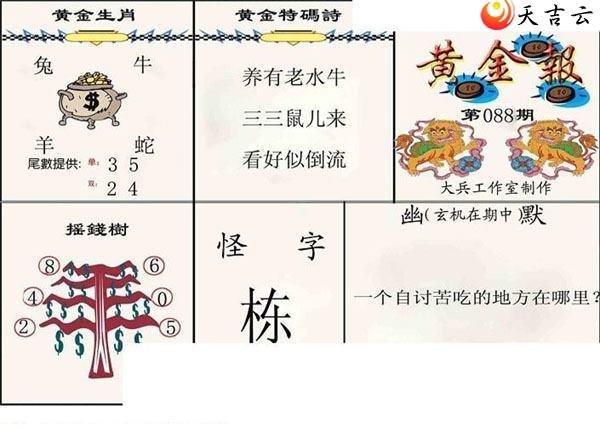 天吉云
黄金生肖
兔 牛
$
羊 蛇
尾數提供: 单: 3 5
双: 2 4
黄金特碼詩
养有老水牛
三三鼠儿来
看好似倒流
黄金報
第088期
大兵工作室制作
摇錢樹
8 6
4 0
2 5
$ $ $ $ $ $ $ $
怪字
栋
幽(玄机在期中)默
一个自讨苦吃的地方在哪里?